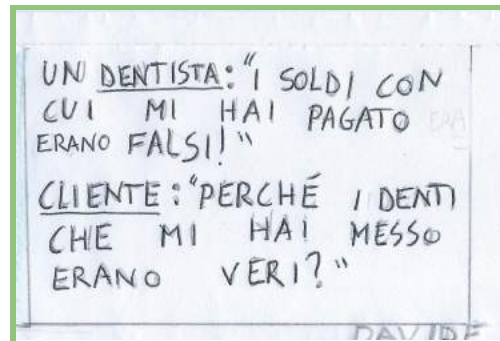 UN DENTISTA: "I SOLDI CON
CUI MI HAI PAGATO
ERANO FALSI!"
CLIENTE: "PERCHÉ I DENTI
CHE MI HAI MESSO
ERANO VERI?"
DAVIDE